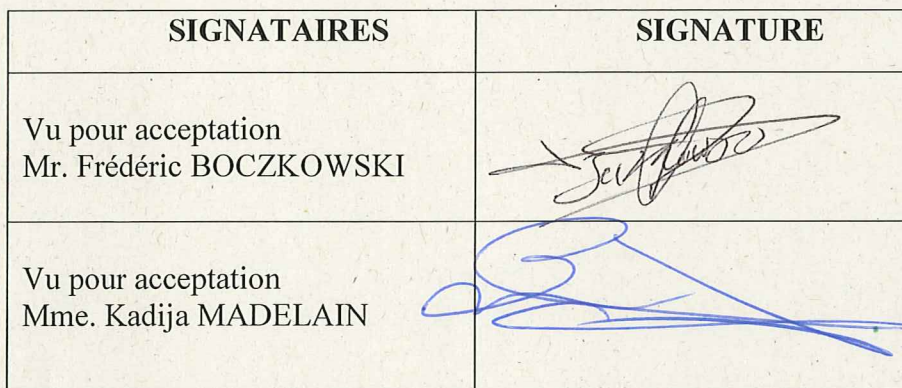 SIGNATAIRES SIGNATURE
Vu pour acceptation
Mr. Frédéric BOCZKOWSKI
Vu pour acceptation
Mme. Kadija MADELAIN